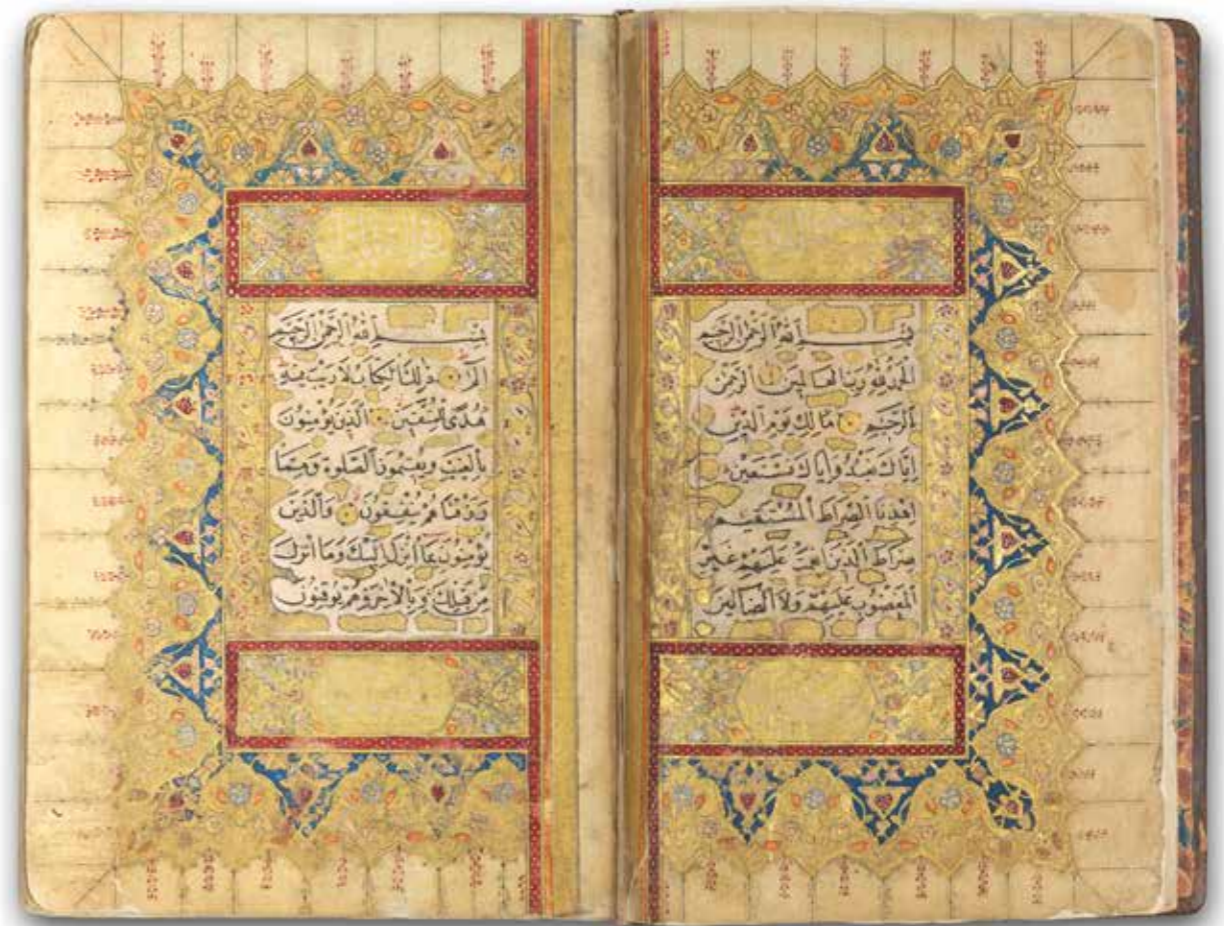 بِسْمِ اللهِ الرَّحْمٰنِ الرَّحِيمِ
اَلْحَمْدُ لِلّٰهِ رَبِّ الْعَالَمِينَ اَلرَّحْمٰنِ
الرَّحِيمِ مَالِكِ يَوْمِ الدِّينِ
اِيَّاكَ نَعْبُدُ وَاِيَّاكَ نَسْتَعِينُ
اِهْدِنَا الصِّرَاطَ الْمُسْتَقِيمَ
صِرَاطَ الَّذِينَ اَنْعَمْتَ عَلَيْهِمْ غَيْرِ
الْمَغْضُوبِ عَلَيْهِمْ وَلَا الضَّالِّينَ
بِسْمِ اللهِ الرَّحْمٰنِ الرَّحِيمِ
الٓمٓ ذٰلِكَ الْكِتَابُ لَا رَيْبَ فِيهِ
هُدًى لِلْمُتَّقِينَ اَلَّذِينَ يُؤْمِنُونَ
بِالْغَيْبِ وَيُقِيمُونَ الصَّلٰوةَ وَمِمَّا
رَزَقْنَاهُمْ يُنْفِقُونَ وَالَّذِينَ
يُؤْمِنُونَ بِمَا اُنْزِلَ اِلَيْكَ وَمَا اُنْزِلَ
مِنْ قَبْلِكَ وَبِالْاٰخِرَةِ هُمْ يُوقِنُونَ